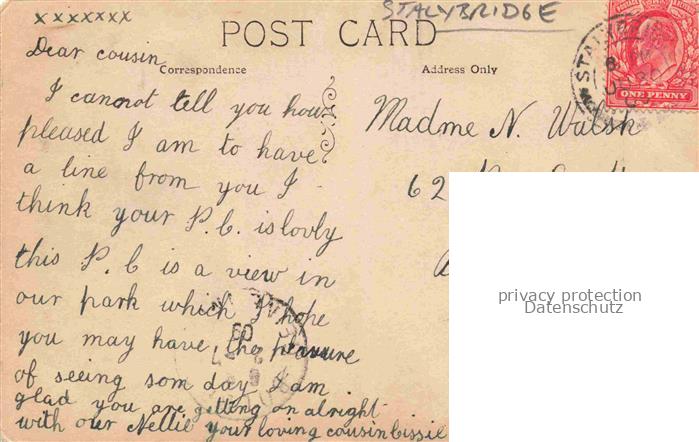 x x x x x x x
STALYBRIDGE
POST CARD
Dear cousin
Correspondence
I cannot tell you how
pleased I am to have
a line from you I
think your P.C. is lovly
this P.C is a view in
our park which I hope
you may have the pleasure
of seeing som day I am
glad you are getting on alright
with our Nellie your loving cousin Cissie
Address Only
Madme N. Walsh
62
ONE PENNY
privacy protection
Datenschutz